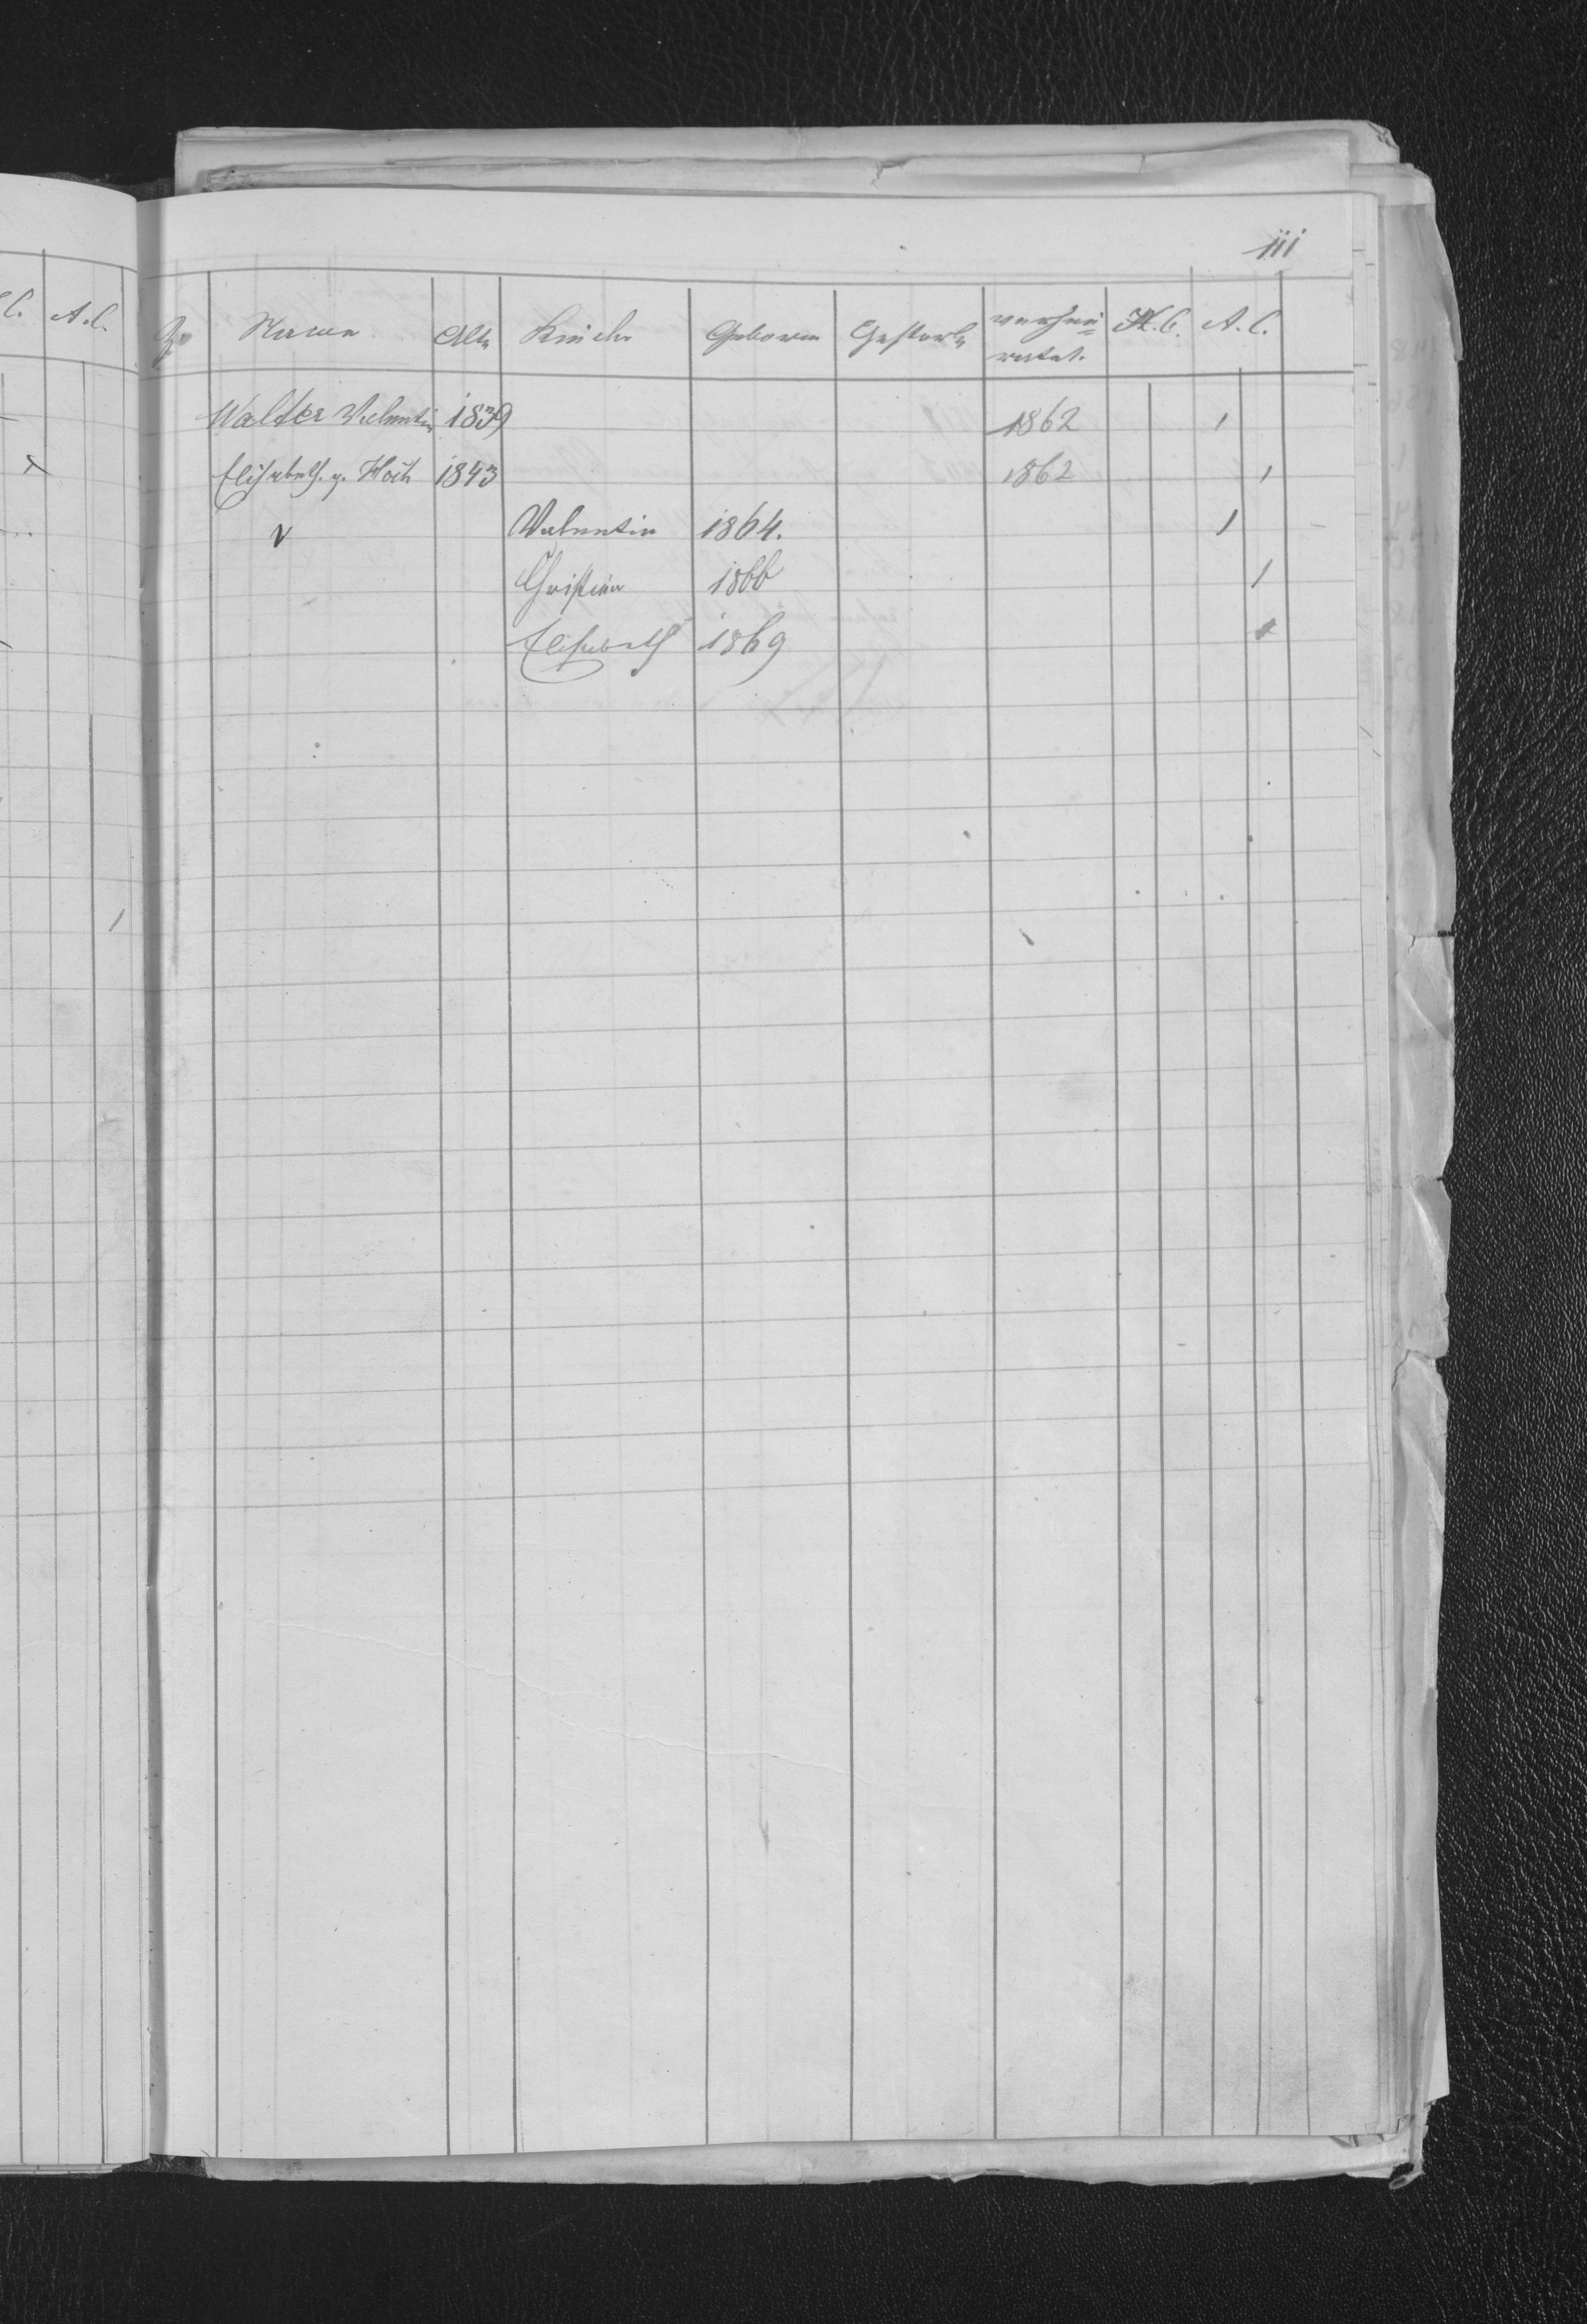 111
C. A.C.
Namen Alter Kinder Geboren Gestorb. verhei=
ratet. H.C. A.C.
Walter Valentin 1839 1862 1
Elisabeth. g. Koch 1843 1862 1
v Valentin 1864. 1
Christina 1866 1
Elisabeth 1869 1